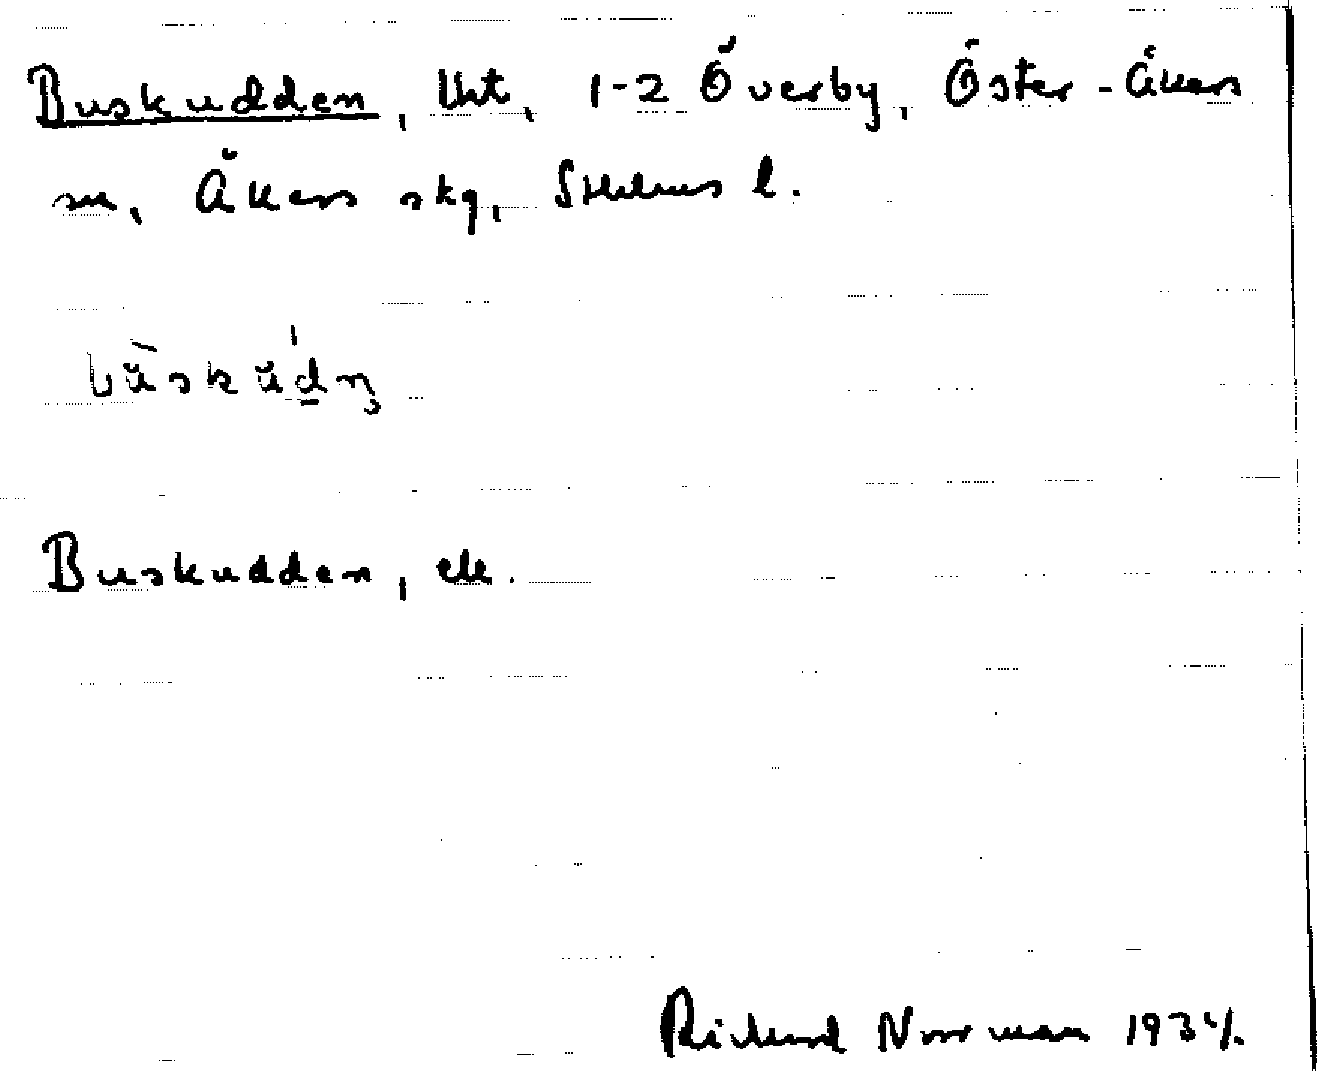 Buskudden, lht, 1-2 Överby, Öster-Åkers
sn, Åkers skg, Sthlms l.
Buskudden, ek.
Richard Norrman